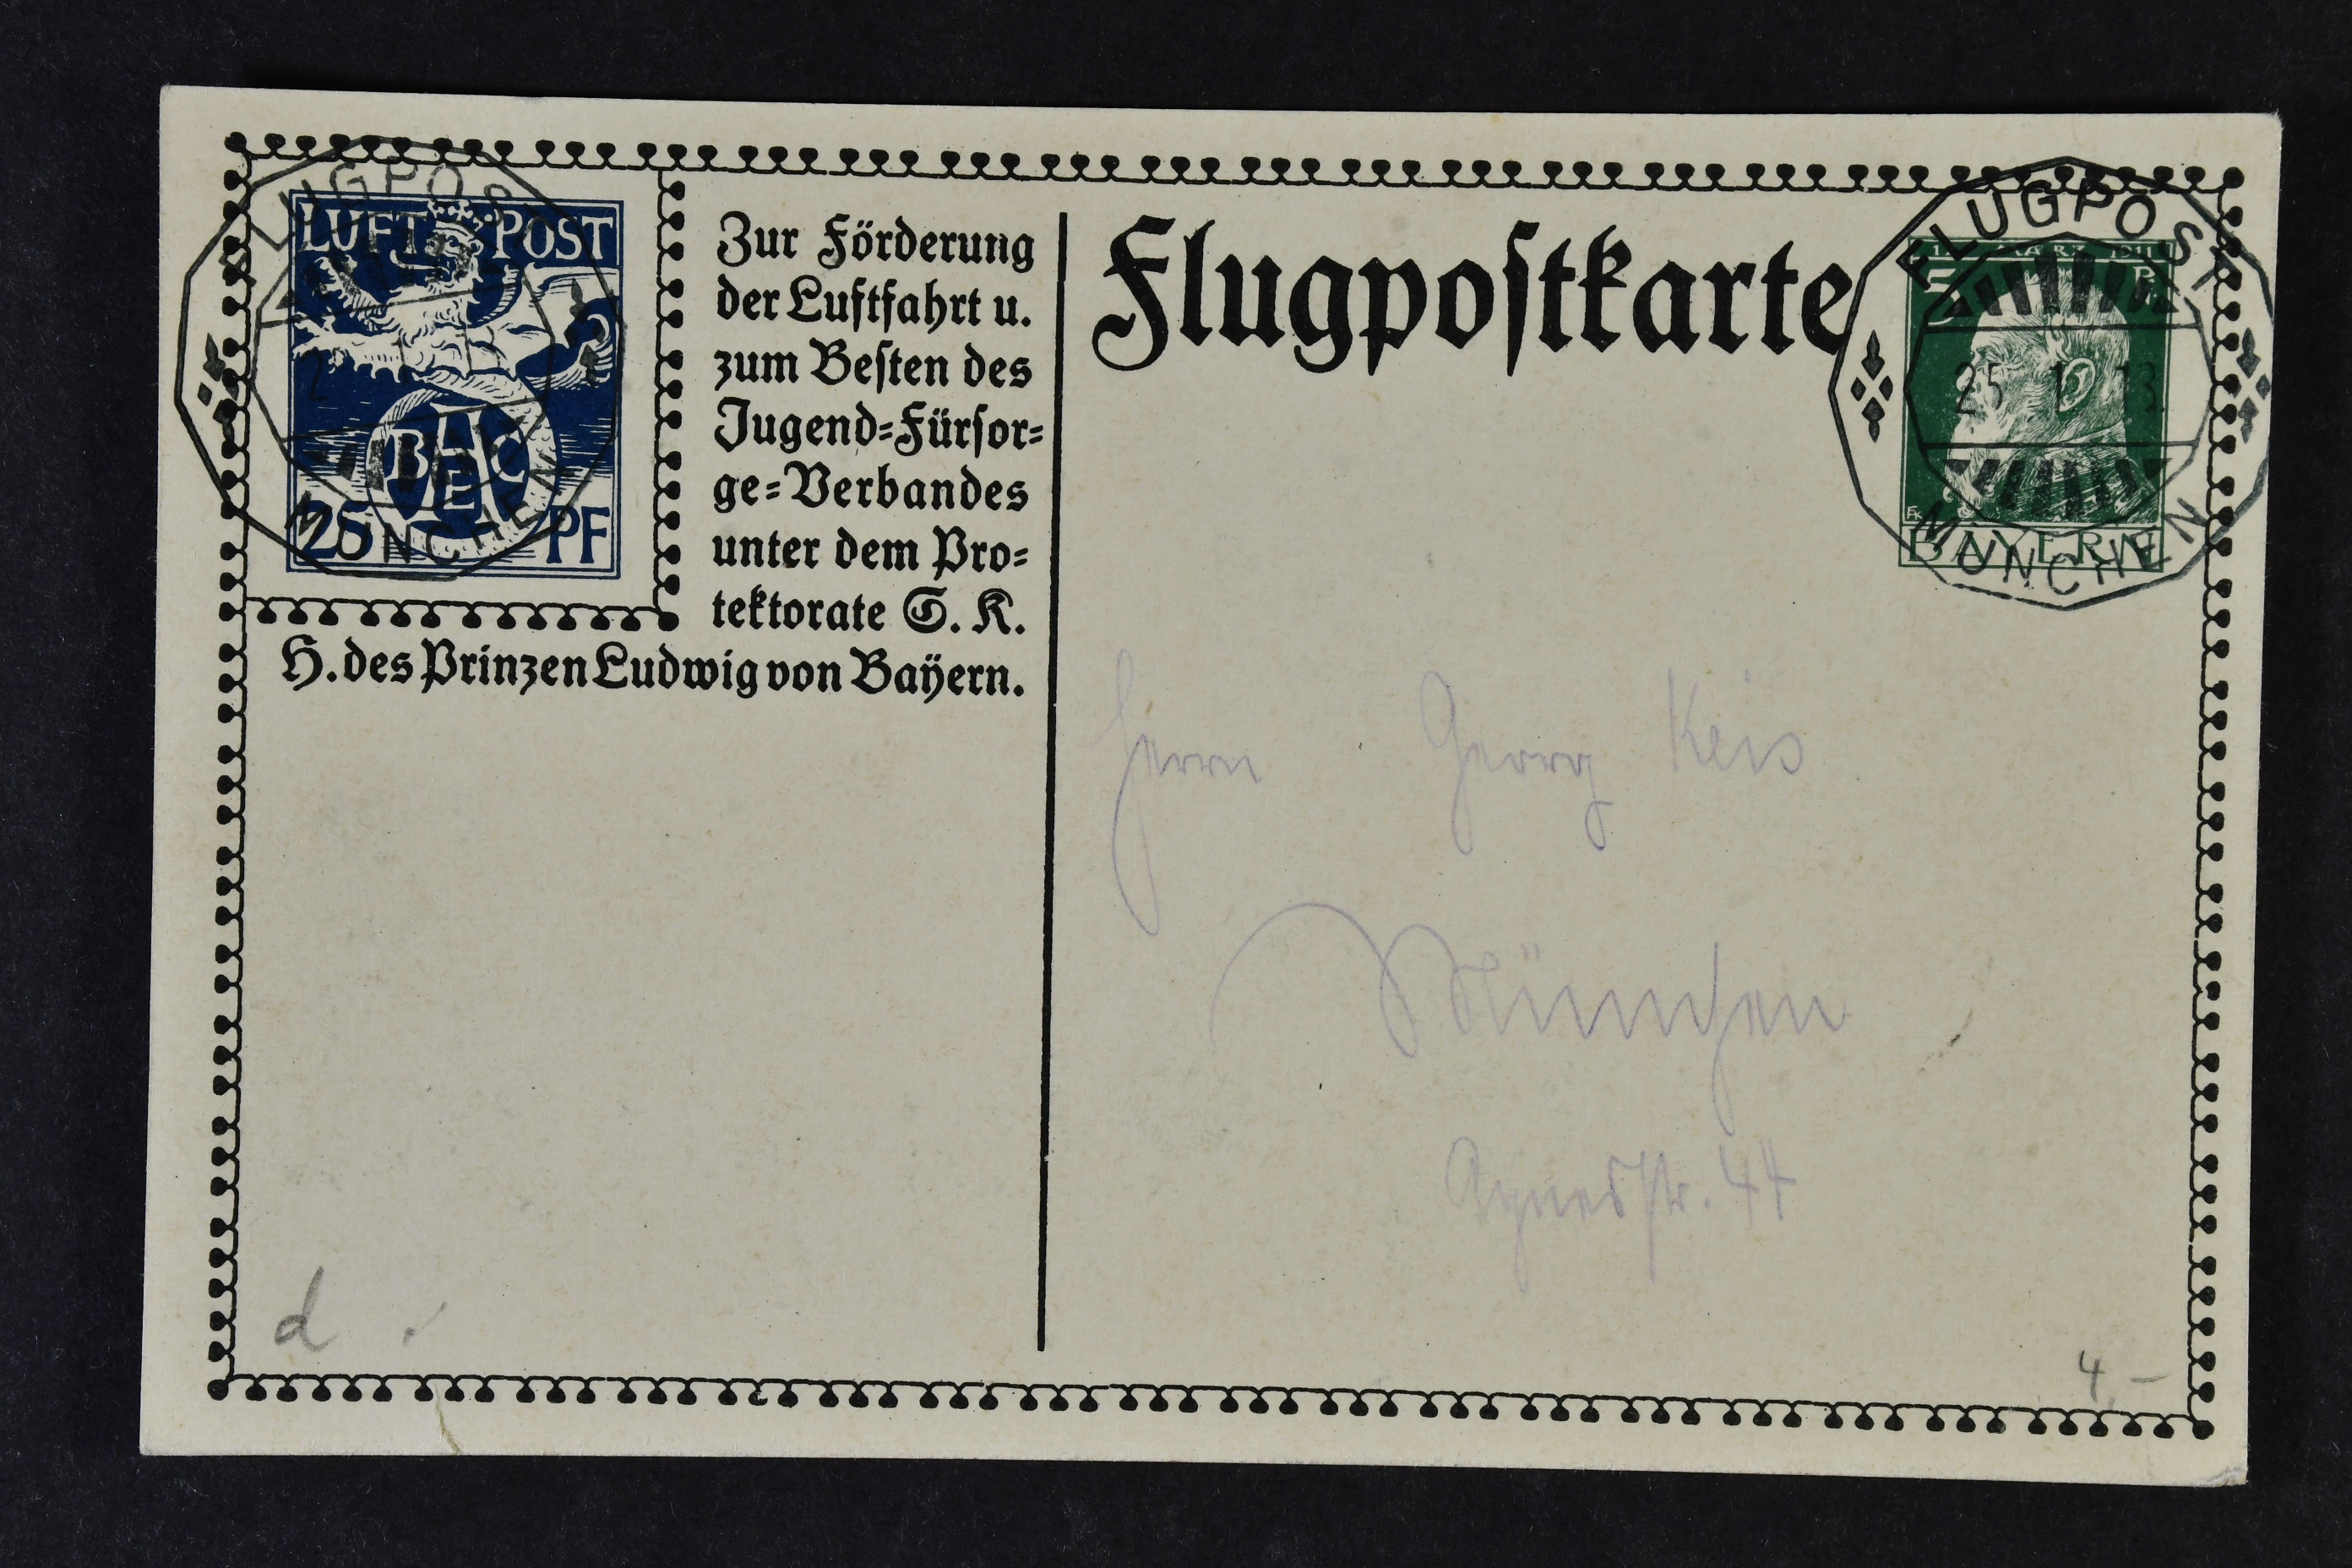 LUFT POST
BAEC
25 PF
FLUGPOST
MÜNCHEN
Zur Förderung
der Luftfahrt u.
zum Besten des
Jugend=Fürsor=
ge=Verbandes
unter dem Pro=
tektorate S. K.
H. des Prinzen Ludwig von Bayern.
Flugpostkarte
FLUGPOST
25 1 13
MÜNCHEN
5
BAYERN
Herrn Georg Keis
München
Agnesstr. 44
d.
4,-